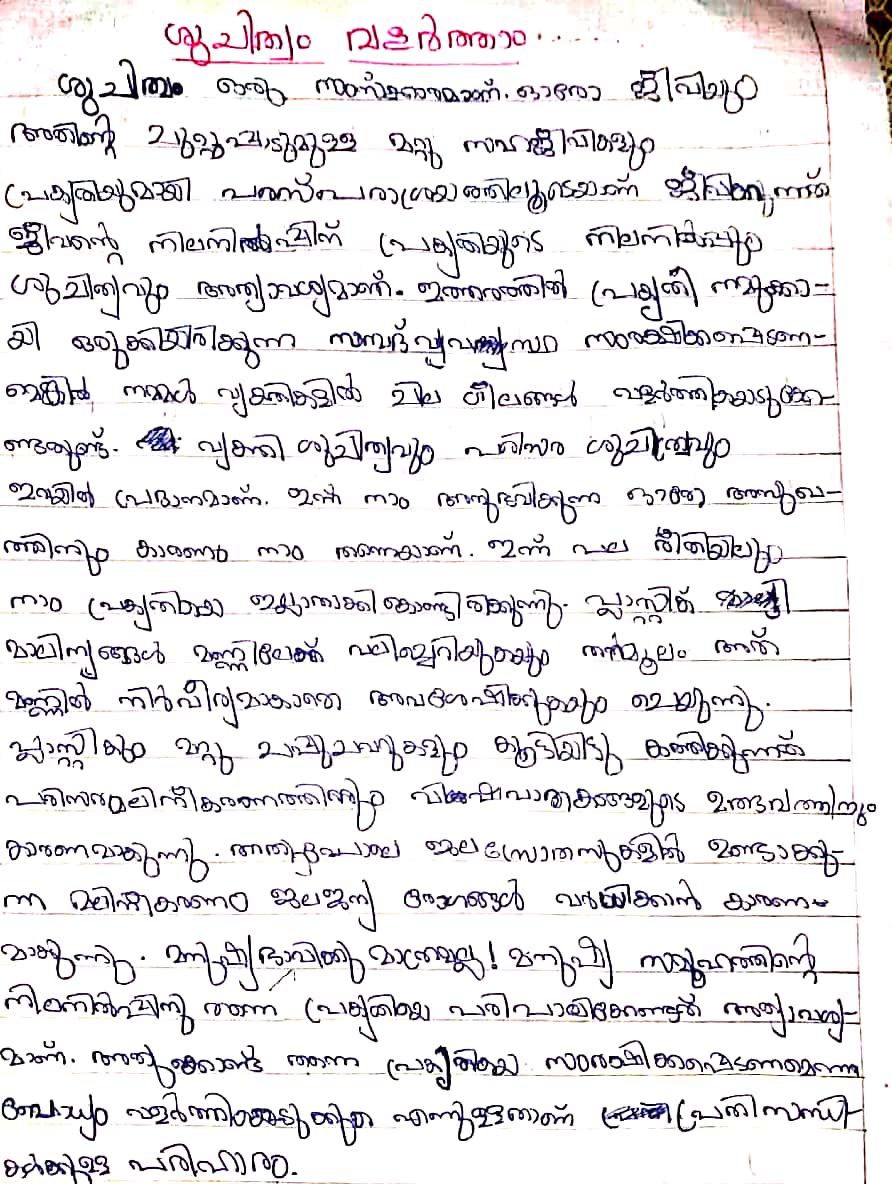 ശുചിത്വം വളർത്താം........
ശുചിത്വം ഒരു സംസ്ക്കാരമാണ്. ഓരോ ജീവിയും
അതിന്റെ ചുറ്റുപ്പാടുമുള്ള മറ്റു സഹജീവികളും
പ്രകൃതിയുമായി പരസ്പരാശ്രയത്തിലൂടെയാണ് ജീവിക്കുന്നത്
ജീവന്റെ നിലനിൽപ്പിന് പ്രകൃതിയുടെ നിലനിൽപ്പും
ശുചിത്വവും അത്യാവശ്യമാണ്. ഇത്തരത്തിൽ പ്രകൃതി നമുക്കാ-
യി ഒരുക്കിയിരിക്കുന്ന സമ്പദ്‌വ്യവസ്ഥ സംരക്ഷിക്കപ്പെടണ-
മെങ്കിൽ നമ്മൾ വ്യക്തികളിൽ ചില ശീലങ്ങൾ വളർത്തിക്കൊടുക്കേ-
ണ്ടതുണ്ട്. വ്യക്തി ശുചിത്വവും പരിസര ശുചിത്വവും
ഇവയിൽ പ്രദാനമാണ്. ഇന്ന് നാം അനുഭവിക്കുന്ന ഓരോ അസുഖ-
ത്തിനും കാരണം നാം തന്നെയാണ്. ഇന്ന് പല രീതിയിലും
നാം പ്രകൃതിയെ ഇല്ലാതാക്കികൊണ്ടിരിക്കുന്നു. പ്ലാസ്റ്റിക്
മാലിന്യങ്ങൾ മണ്ണിലേക്ക് വലിച്ചെറിയുകയും അതുമൂലം അത്
മണ്ണിൽ നിർവീര്യമാകാതെ അവശേഷിക്കുകയും ചെയ്യുന്നു.
പ്ലാസ്റ്റിക്കും മറ്റു ചപ്പുചവറുകളും കൂട്ടിയിട്ടു കത്തിക്കുന്നത്
പരിസരമലിനീകരണത്തിനും വിഷവാതകങ്ങളുടെ ഉത്ഭവത്തിനും
കാരണമാകുന്നു. അതുപോലെ ജല സ്രോതസുകളിൽ ഉണ്ടാക്കു-
ന്ന മലിനീകരണം ജലജന്യ രോഗങ്ങൾ വർദ്ധിക്കാൻ കാരണ-
മാകുന്നു. മനുഷ്യഭാവിക്കു മാത്രമല്ല! മനുഷ്യ സമൂഹത്തിന്റെ
നിലനിൽപ്പിനു തന്നെ പ്രകൃതിയെ പരിപാലിക്കേണ്ടത് അത്യാവശ്യ-
മാണ്. അതുകൊണ്ട് തന്നെ പ്രകൃതിയെ സംരക്ഷിക്കപ്പെടണമെന്ന
ബോധം വളർത്തിയെടുക്കുക എന്നുള്ളതാണ് പ്രതിസന്ധി-
കൾക്കുള്ള പരിഹാരം.